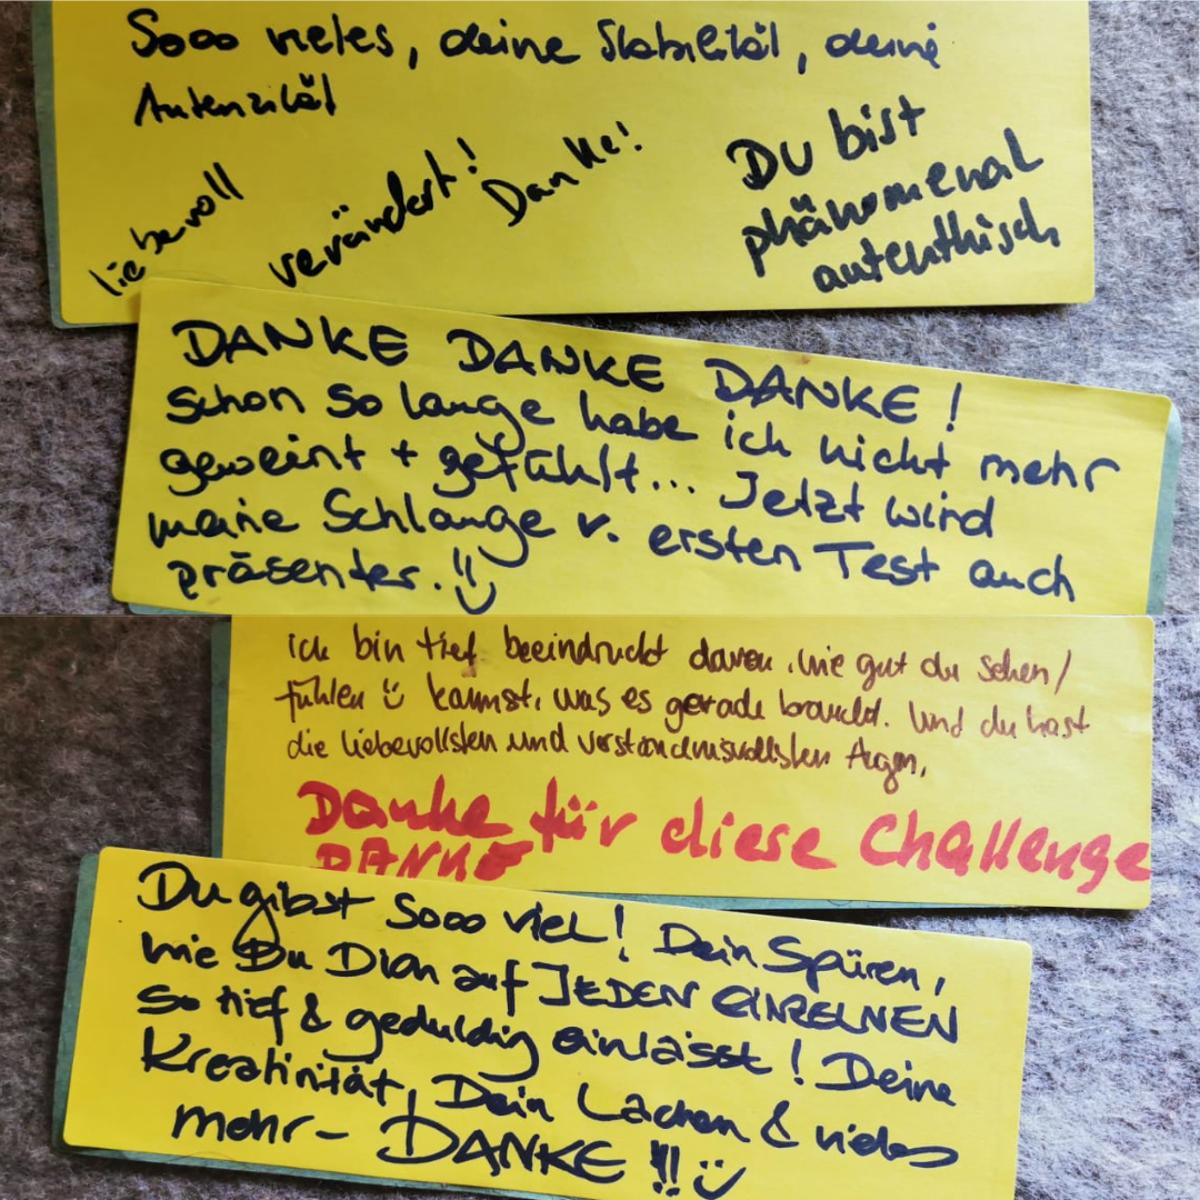 Sooo vieles, deine Stabilität, deine
Autenzität
liebevoll
verändert!
Danke!
Du bist
phänomenal
autenthisch
DANKE DANKE DANKE!
schon so lange habe ich nicht mehr
geweint + gefühlt... Jetzt wird
meine Schlange v. ersten Test auch
präsenter.!! :)
ich bin tief beeindruckt davon, wie gut du sehen/
fühlen :) kannst, was es gerade braucht. Und du hast
die liebevollsten und verständnisvollsten Augen.
Danke für diese Challenge
DANKE
Du gibst Sooo viel! Dein Spüren,
wie Du Dich auf JEDEN EINZELNEN
so tief & geduldig einlässt! Deine
Kreativität, Dein Lachen & vieles
mehr- DANKE!!! :)